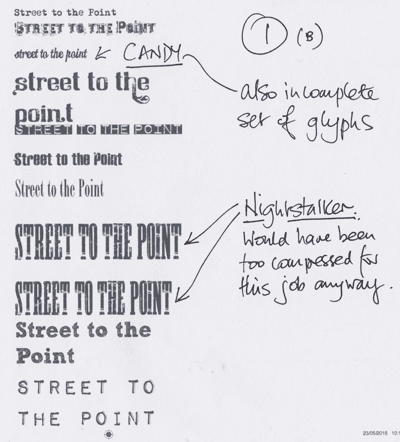 Street to the Point
STREET TO THE POINT
street to the point
CANDY
① (B)
street to the
point
STREET TO THE POINT
also incomplete
set of glyphs
Street to the Point
Street to the Point
STREET TO THE POINT
STREET TO THE POINT
Nightstalker.
Would have been
too compressed for
this job anyway.
Street to the
Point
STREET TO
THE POINT
23/05/2016 10:1